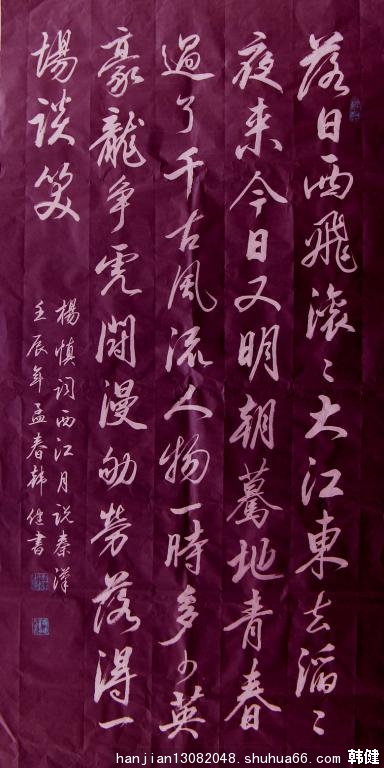 落日西飛滚〻大江東去滔〻
夜来今日又明朝驀地青春
過了千古風流人物一時多少英
豪龍争虎鬪漫劬勞落得一
場談笑
楊慎詞西江月説秦漢
壬辰年孟春韩健書
hanjian13082048.shuhua66.com 韩健